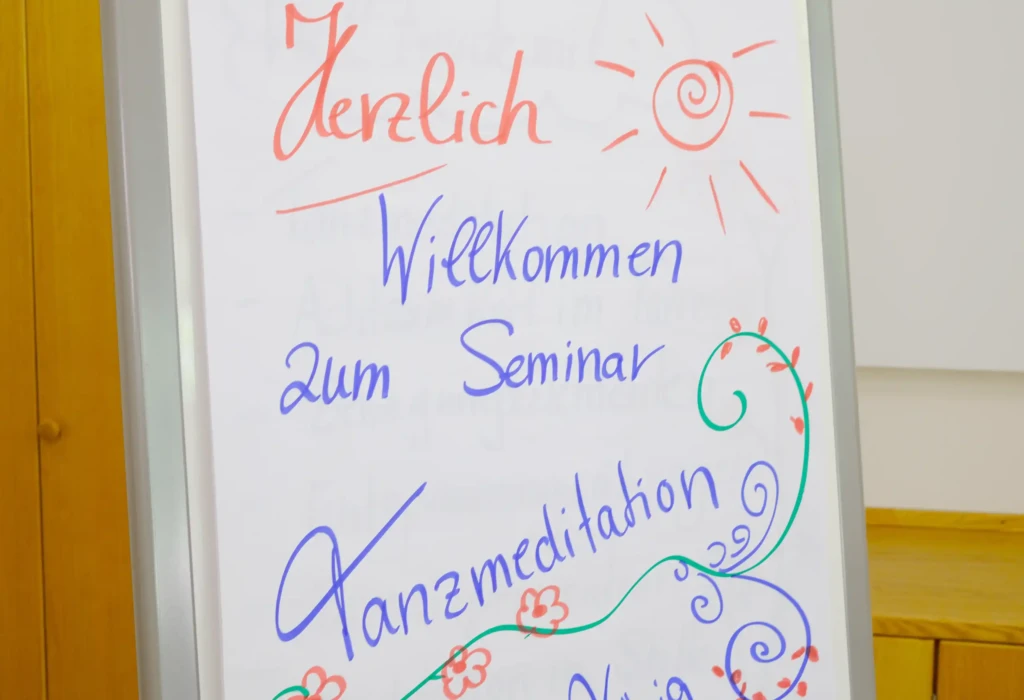 Herzlich
Willkommen
zum Seminar
Tanzmeditation